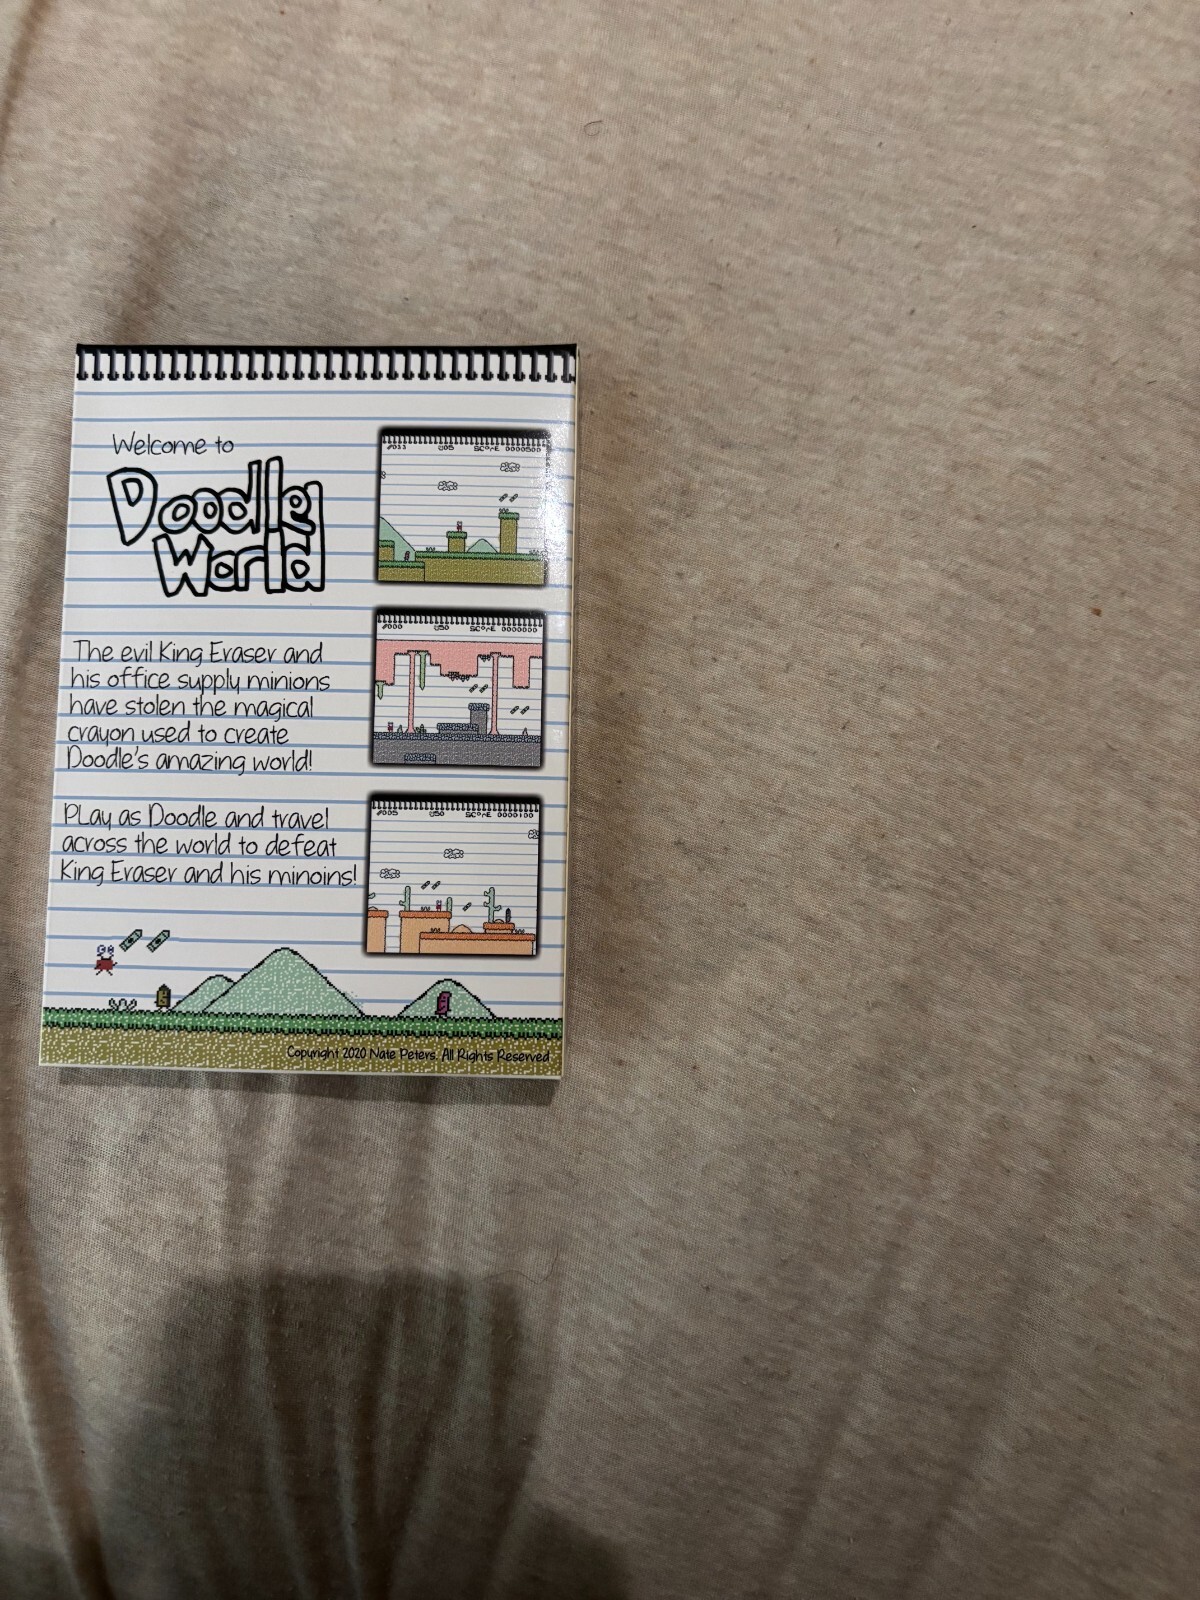 Welcome to
Doodle
World
The evil King Eraser and
his office supply minions
have stolen the magical
crayon used to create
Doodle's amazing world!
PLay as Doodle and travel
across the world to defeat
King Eraser and his minoins!
SCOrE 0000500
SCOrE 0000000
SCOrE 0000100
Copyright 2020 Nate Peters. All Rights Reserved